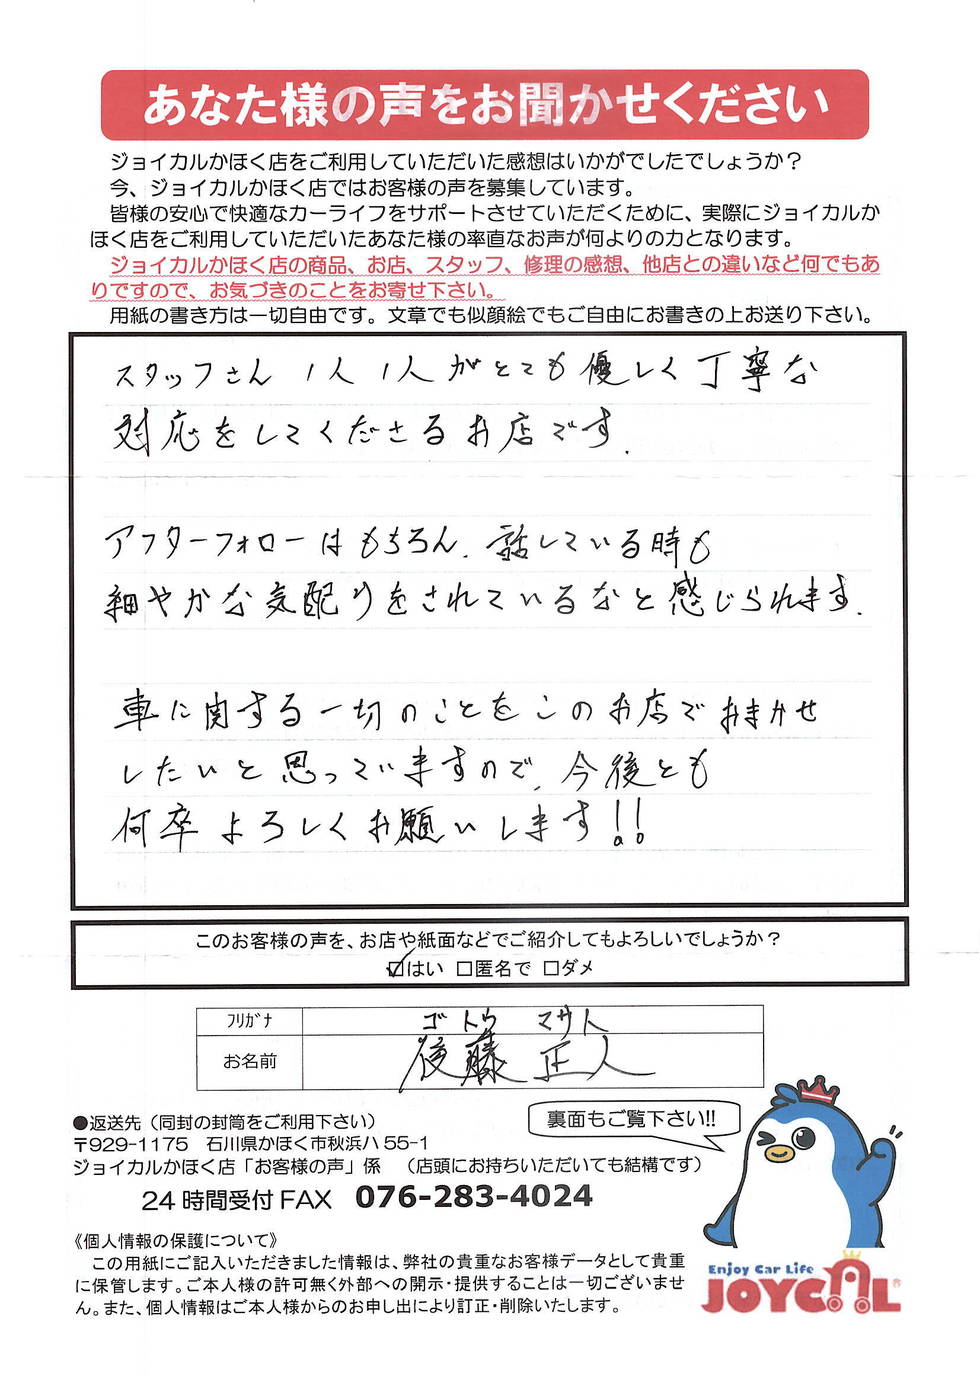 あなた様の声をお聞かせください
ジョイカルかほく店をご利用していただいた感想はいかがでしたでしょうか？
今、ジョイカルかほく店ではお客様の声を募集しています。
皆様の安心で快適なカーライフをサポートさせていただくために、実際にジョイカルか
ほく店をご利用していただいたあなた様の率直なお声が何よりの力となります。
ジョイカルかほく店の商品、お店、スタッフ、修理の感想、他店との違いなど何でもあ
りですので、お気づきのことをお寄せ下さい。
用紙の書き方は一切自由です。文章でも似顔絵でもご自由にお書きの上お送り下さい。
スタッフさん 1人1人がとても優しく丁寧な
対応をしてくださるお店です.
アフターフォローはもちろん. 話している時も
細やかな気配りをされているなと感じられます.
車に関する一切のことをこのお店でおまかせ
したいと思っていますので. 今後とも
何卒よろしくお願いします!!
このお客様の声を、お店や紙面などでご紹介してもよろしいでしょうか？
☑はい □匿名で □ダメ
ﾌﾘｶﾞﾅ ゴトウ マサト
お名前 後藤 正人
裏面もご覧下さい!!
●返送先（同封の封筒をご利用下さい）
〒929-1175 石川県かほく市秋浜ハ55-1
ジョイカルかほく店「お客様の声」係 （店頭にお持ちいただいても結構です）
24時間受付FAX 076-283-4024
《個人情報の保護について》
この用紙にご記入いただきました情報は、弊社の貴重なお客様データとして貴重
に保管します。ご本人様の許可無く外部への開示・提供することは一切ございませ
ん。また、個人情報はご本人様からのお申し出により訂正・削除いたします。
Enjoy Car Life
JOYCAL®